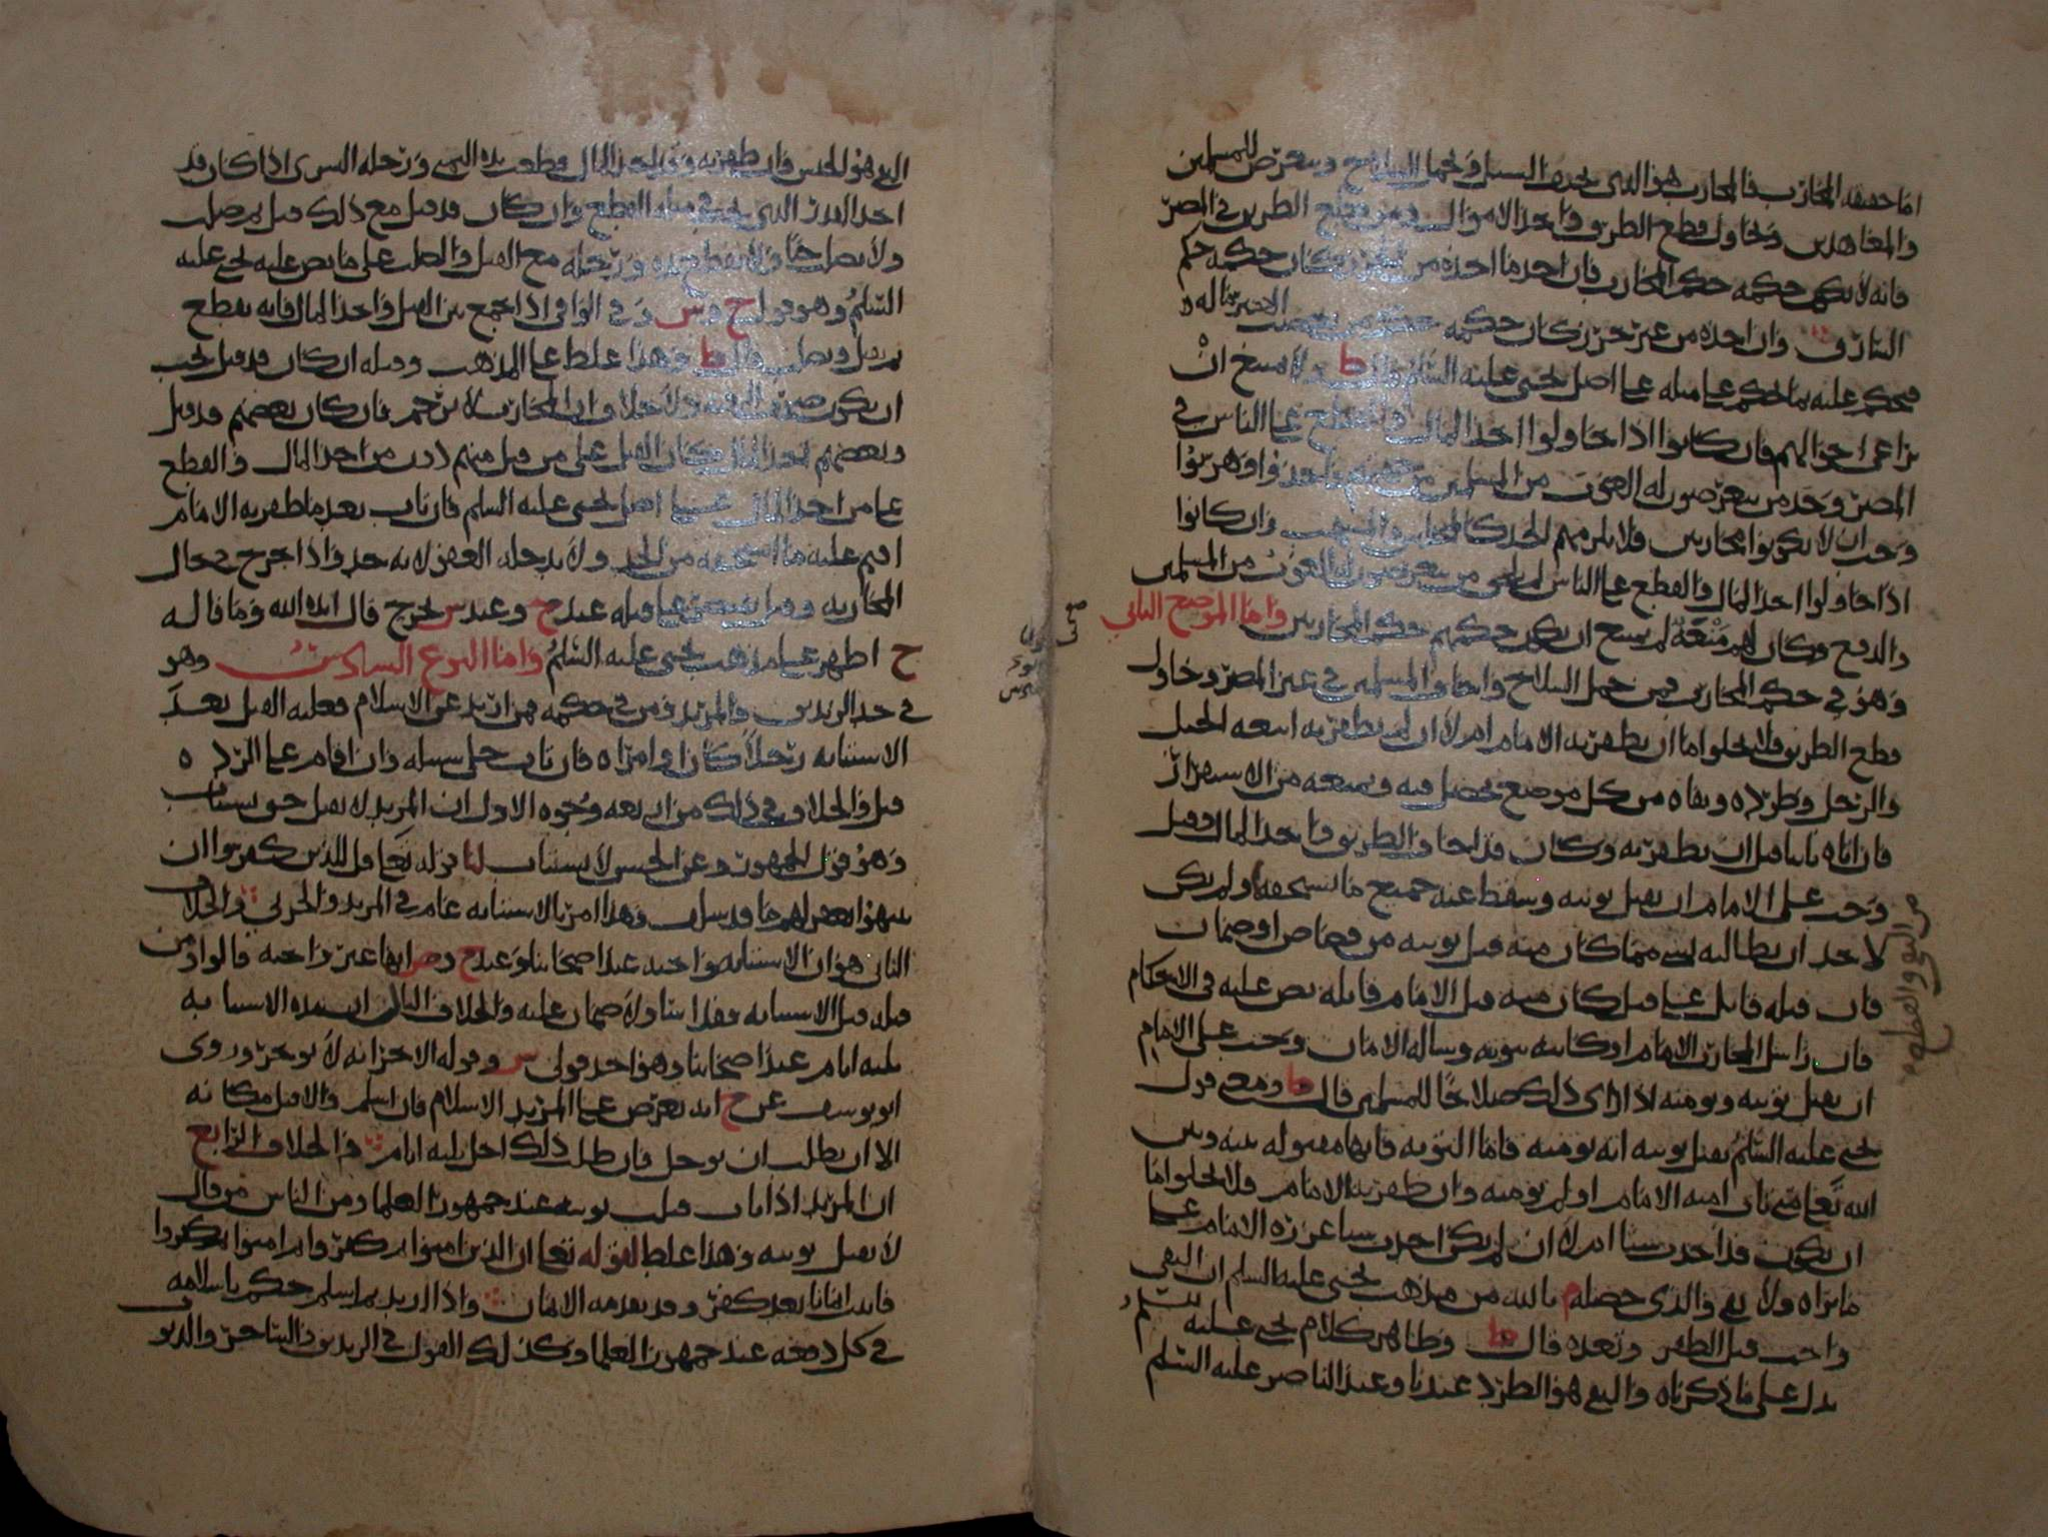 اما حقيقه المحارب فالمحارب هو الذي يخيف السبيل ويحمل السلاح ويتعرض للمسلمين
والمعاهدين ويحاول قطع الطريق واخذ الاموال ومن قطع الطريق في المصر
فانه لا يكون حكمه حكم المحارب فان اخذ ما اخذه من حرز كان حكمه حكم
السارق وان اخذه من غير حرز كان حكمه حكم من
فيحكم عليه بما يحكم على مثله على اصل يحيى عليه السلام قال ط ولا يمتنع ان
يراعى احوالهم فان كانوا اذا حاولوا اخذ المال والقطع على الناس في
المصر وجد من يتعرضون له الغوث من المسلمين من وهربوا
وجب ان لا يكونوا محاربين فلا يلزمهم الحد كالمختلس والمنتهب وان كانوا
اذا حاولوا اخذ المال والقطع على الناس لم يلحق من يتعرضون له الغوث من المسلمين
والدفع وكان لهم منعة لم يمتنع ان يكون حكمهم حكم المحاربين واما الموضع الثاني
وهو في حكم المحارب فمن حمل السلاح واخاف المسلمين في غير المصر وحاول
قطع الطريق فلا يخلو اما ان يظفر به الامام ام لا ان لم يظفر به اتبعه الخيل
والرجل وطرده ونفاه من كل موضع يحصل فيه ويمنعه من الاستقرار
فان اتاه تايبا قبل ان يظفر به وكان قد اخاف الطريق واخذ المال وقتل
وجب على الامام ان يقبل توبته وسقط عنه جميع ما يستحقه ولم يكن
لاحد ان يطالبه بشي مما كان منه قبل توبته من قصاص او ضمان
فان قتله قاتل على قتل كان منه قبل الامام قاتله نص عليه في الاحكام
فان راسل المحارب الامام او كاتبه بتوبته وساله الامان وجب على الامام
ان يقبل توبته ويومنه اذا راى ذلك صلاحا للمسلمين قال ط ومعنى قول
يحيى عليه السلام يقبل توبته انه يومنه فاما التوبه فانها مقبوله بينه وبين
الله تعالى متى تاب امنه الامام او لم يومنه وان ظفر به الامام فلا يخلو اما
ان يكون قد احدث شيئا ام لا ان لم يكن احدث شيئا عزره الامام على
ما يراه ولا والذي حصله م بالله من مذهب يحيى عليه السلم ان النفي
واجب قبل الظفر وبعده قال ط وظاهر كلام يحيى عليه السلم
يدل على ما ذكرناه والنفي هو الطرد عندنا وعند الناصر عليه السلم
من النفي والقطع
النفي هو الحبس فان ظفر به وقد اخذ المال قطعت يده اليمنى ورجله اليسرى اذا كان قد
اخذ القدر الذي يجب في مثله القطع وان كان قد قتل مع ذلك قتل ثم صلب
ولا يصلب حيا ولا يقطع يده ورجله مع القتل والصلب على ما نص عليه يحيى عليه
السلم وهو قول ح وش وفي الوافي اذا جمع بين القتل واخذ المال فانه يقطع
ثم يقتل ويصلب قال ط وهذا غلط على المذهب وقتله ان كان قد قتل يجب
ان يكون ضرب الرقبه ولا خلاف ان المحارب لا يرجم فان كان بعضهم قد قتل
وبعضهم اخذ المال كان القتل على من قتل منهم دون من اخذ المال والقطع
على من اخذ المال على اصل يحيى عليه السلم فان تاب بعد ما ظفر به الامام
اقيم عليه ما استحقه من الحد ولا يدخله العفو لانه حد واذا جرح في حال
المحاربه وقتل على قتله عند ح وعند ش يجرح قال ايده الله وما قاله
ح اظهر على مذهب يحيى عليه السلم واما النوع السادس وهو
في حد الزنديق والمرتد ومن في حكمه فمن ارتد عن الاسلام فعليه القتل بعد
الاستتابه رجلا كان او امراه فان تاب خلي سبيله وان اقام على الرده
قتل والخلاف في ذلك من اربعه وجوه الاول ان المرتد لا يقتل حتى يستتاب
وهو قول الجمهور وعن الحسن لا يستتاب لنا قوله تعالى قل للذين كفروا ان
ينتهوا يغفر لهم ما قد سلف وهذا امر بالاستتابه عام في المرتد والحربي والخلاف
الثاني هو ان الاستتابه واجبه عند اصحابنا وعند ح وص انها غير واجبه قالوا ومن
قتله قبل الاستتابه فقد اسا ولا ضمان عليه والخلاف الثالث ان مده الاستتابه
ثلثه ايام عند اصحابنا وهو احد قولي ش وقوله الاخر انه لا يوخر وروى
ابو يوسف عن ح انه يعرض على المرتد الاسلام فان اسلم والا قتل مكانه
الا ان يطلب ان يوجل فان طلب ذلك اجل ثلثه ايام والخلاف الرابع
ان المرتد اذا تاب قبلت توبته عند جمهور العلما ومن الناس من قال
لا يقبل توبته وهذا غلط لقوله تعالى ان الذين امنوا ثم كفروا ثم امنوا ثم كفروا
فاثبت ايمانا بعد كفر وقد تقدمه الايمان واذا ارتد ثم اسلم حكم باسلامه
في كل دفعه عند جمهور العلما وكذلك القول في الزنديق والساحر والديوث